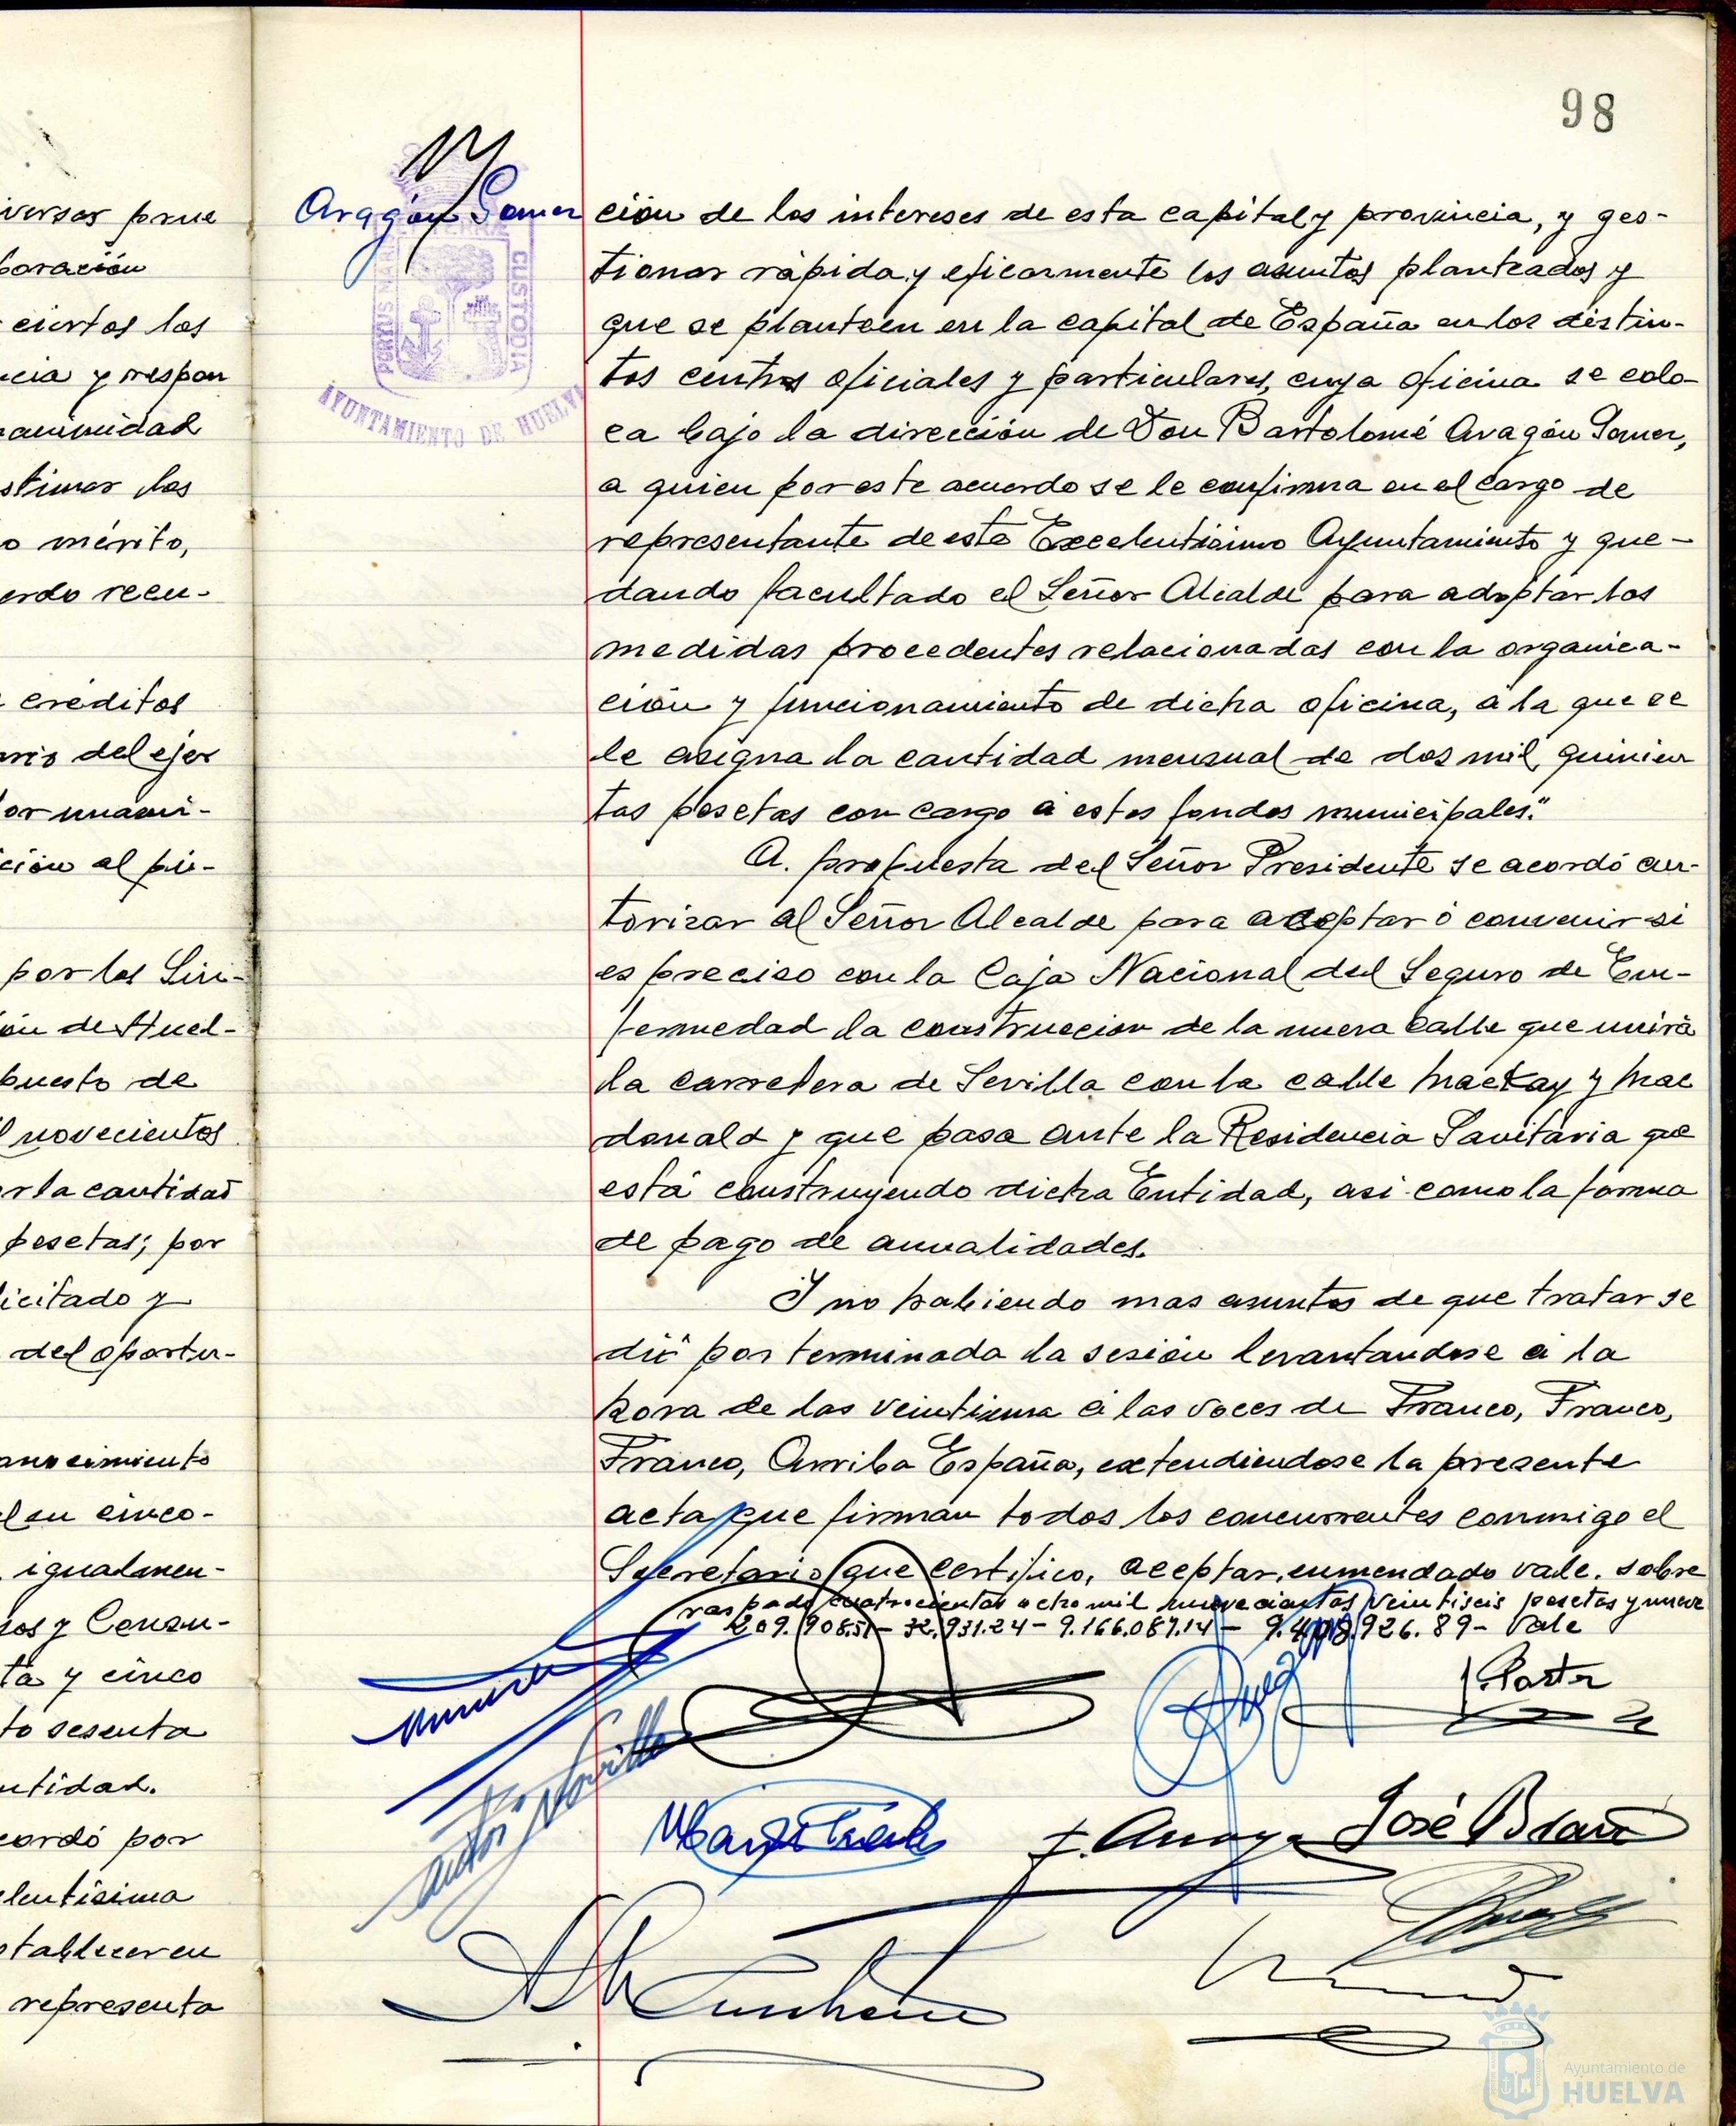 98
iversas prue
boración
ciertos los
icia y respon
animidad
stimar las
o mérito,
erdo recu-
créditos
rio del ejer
or unani-
ción al pú-
por los Sin-
ón de Huel-
puesto de
l novecientos
r la cantidad
pesetas; por
icitado y
del oportu-
anocimiento
en cinco-
igualmen-
sos y Consu-
ta y cinco
to sesenta
ntidad.
cordó por
lentísima
stablecer en
representa
Aragón Gomez
CUSTODIA
AYUNTAMIENTO DE HUELVA
ción de los intereses de esta capital y provincia, y ges-
tionar rápida y eficazmente los asuntos planteados y
que se planteen en la capital de España en los distin-
tos centros oficiales y particulares, cuya oficina se colo-
ca bajo la dirección de Don Bartolomé Aragón Gomez,
a quien por este acuerdo se le confirma en el cargo de
representante de este Excelentísimo Ayuntamiento y que-
dando facultado el Señor Alcalde para adoptar las
medidas procedentes relacionadas con la organiza-
ción y funcionamiento de dicha oficina, a la que se
le asigna la cantidad mensual de dos mil quinien
tas pesetas con cargo a estos fondos municipales."
A propuesta del Señor Presidente se acordó au-
torizar al Señor Alcalde para aceptar ó convenir si
es preciso con la Caja Nacional del Seguro de En-
fermedad la construccion de la nueva calle que unirá
la carretera de Sevilla con la calle Mackay y Mac
donald y que pasa ante la Residencia Sanitaria que
está construyendo dicha Entidad, asi como la forma
de pago de anualidades.
Y no habiendo mas asuntos de que tratar se
dió por terminada la sesión levantandose a la
hora de las veintiuna a las voces de Franco, Franco,
Franco, Arriba España, extendiendose la presente
acta que firman todos los concurrentes conmigo el
Secretario que certifico, aceptar, enmendado vale. sobre
raspado cuatrocientas ocho mil nueve cientas veintiseis pesetas y nueve
209.908.51 - 32.931.24 - 9.166.087.14 - 9.408.926.89 - Vale
José Blanc
Ayuntamiento de
HUELVA